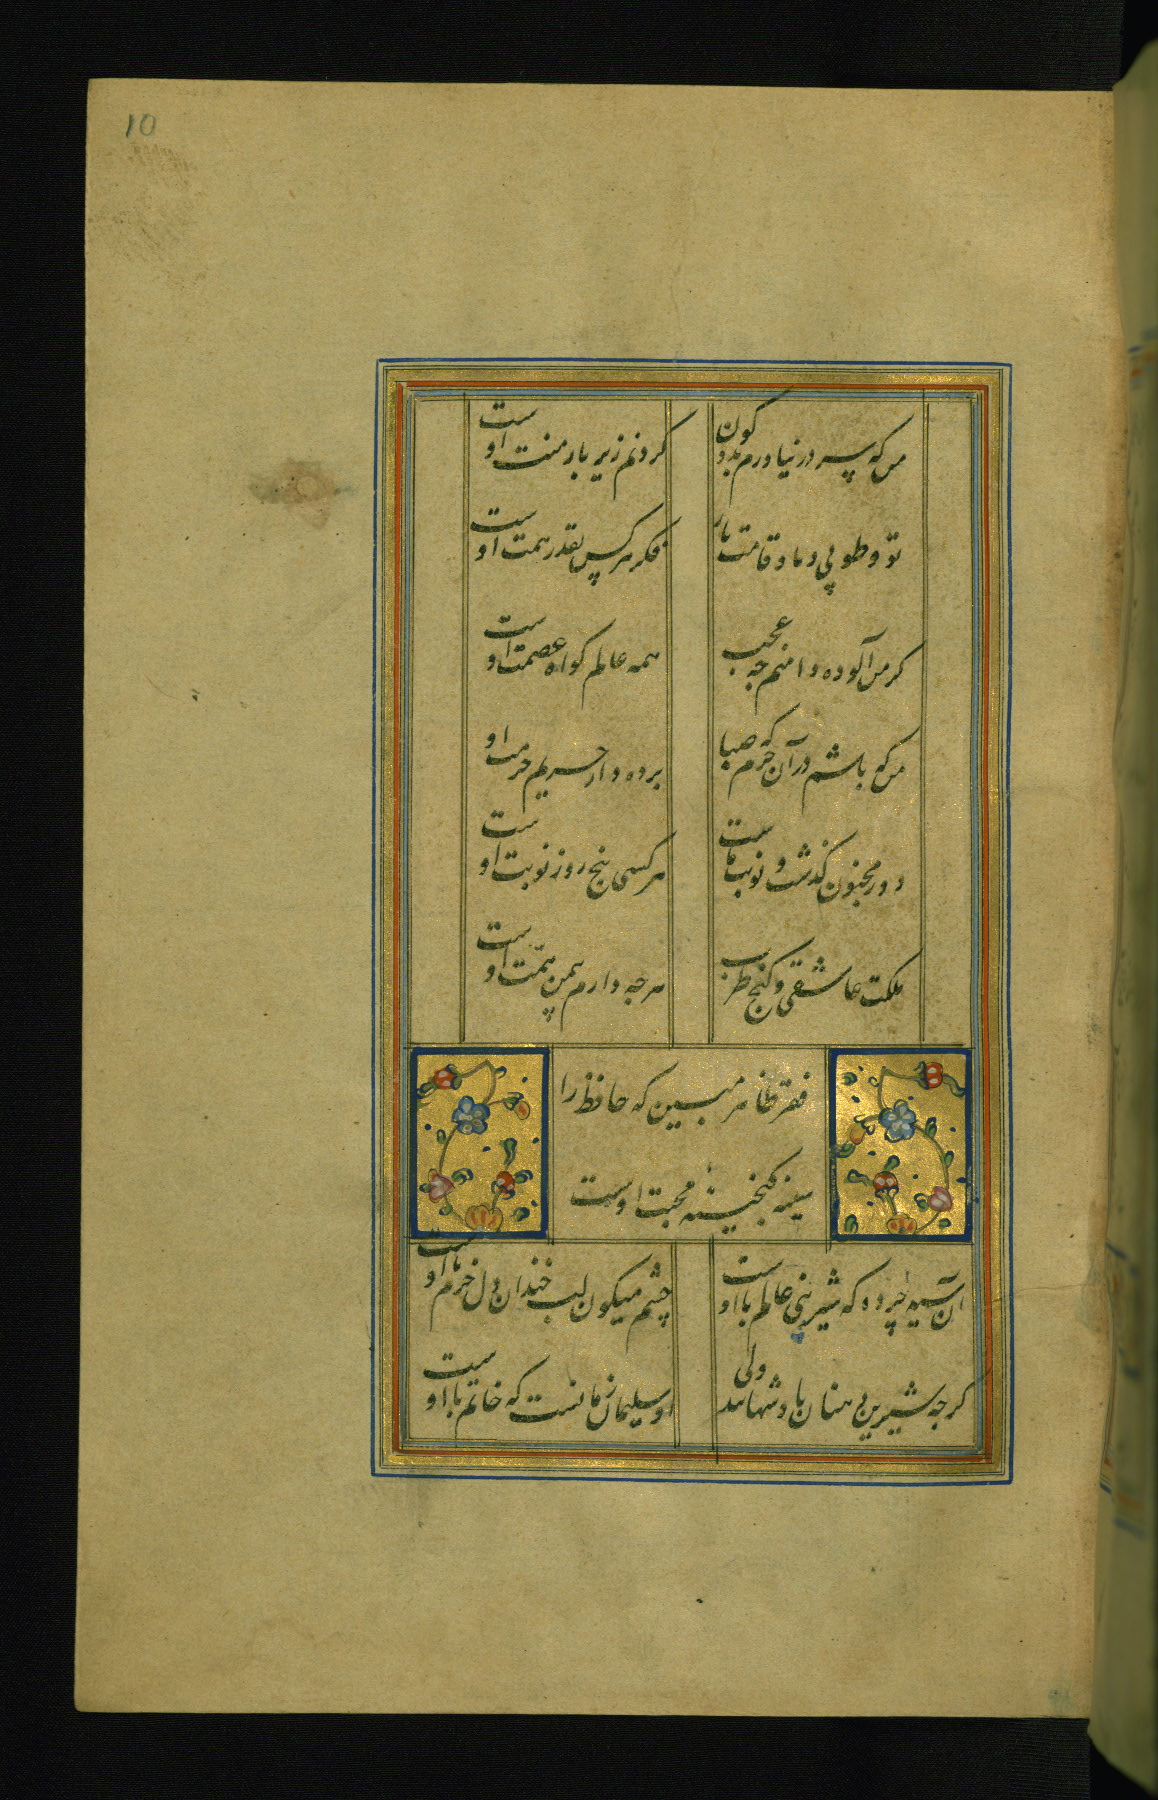 10
من که سر در نیاورم بدو کون
کردنم زیر بار منت اوست
تو و طوبی و ما و قامت یار
فکر هر کس بقدر همت اوست
کر من آلوده دامنم چه عجب
همه عالم کواه عصمت اوست
من که باشم در آن حرم که صبا
برده دار حریم حرمت او
دور مجنون گذشت و نوبت ماست
هر کسی پنج روز نوبت اوست
ملکت عاشقی و کنج طرب
هر جه دارم یمن همت اوست
فقر ظاهر مبین که حافظ را
سینه کنجینه محبت اوست
ان سیه چرده که شیرینی عالم با اوست
چشم میکون لب خندان دل خرم با اوست
کرجه شیرین دهنان بادشهانند ولی
او سلیمان زمانست که خاتم با اوست